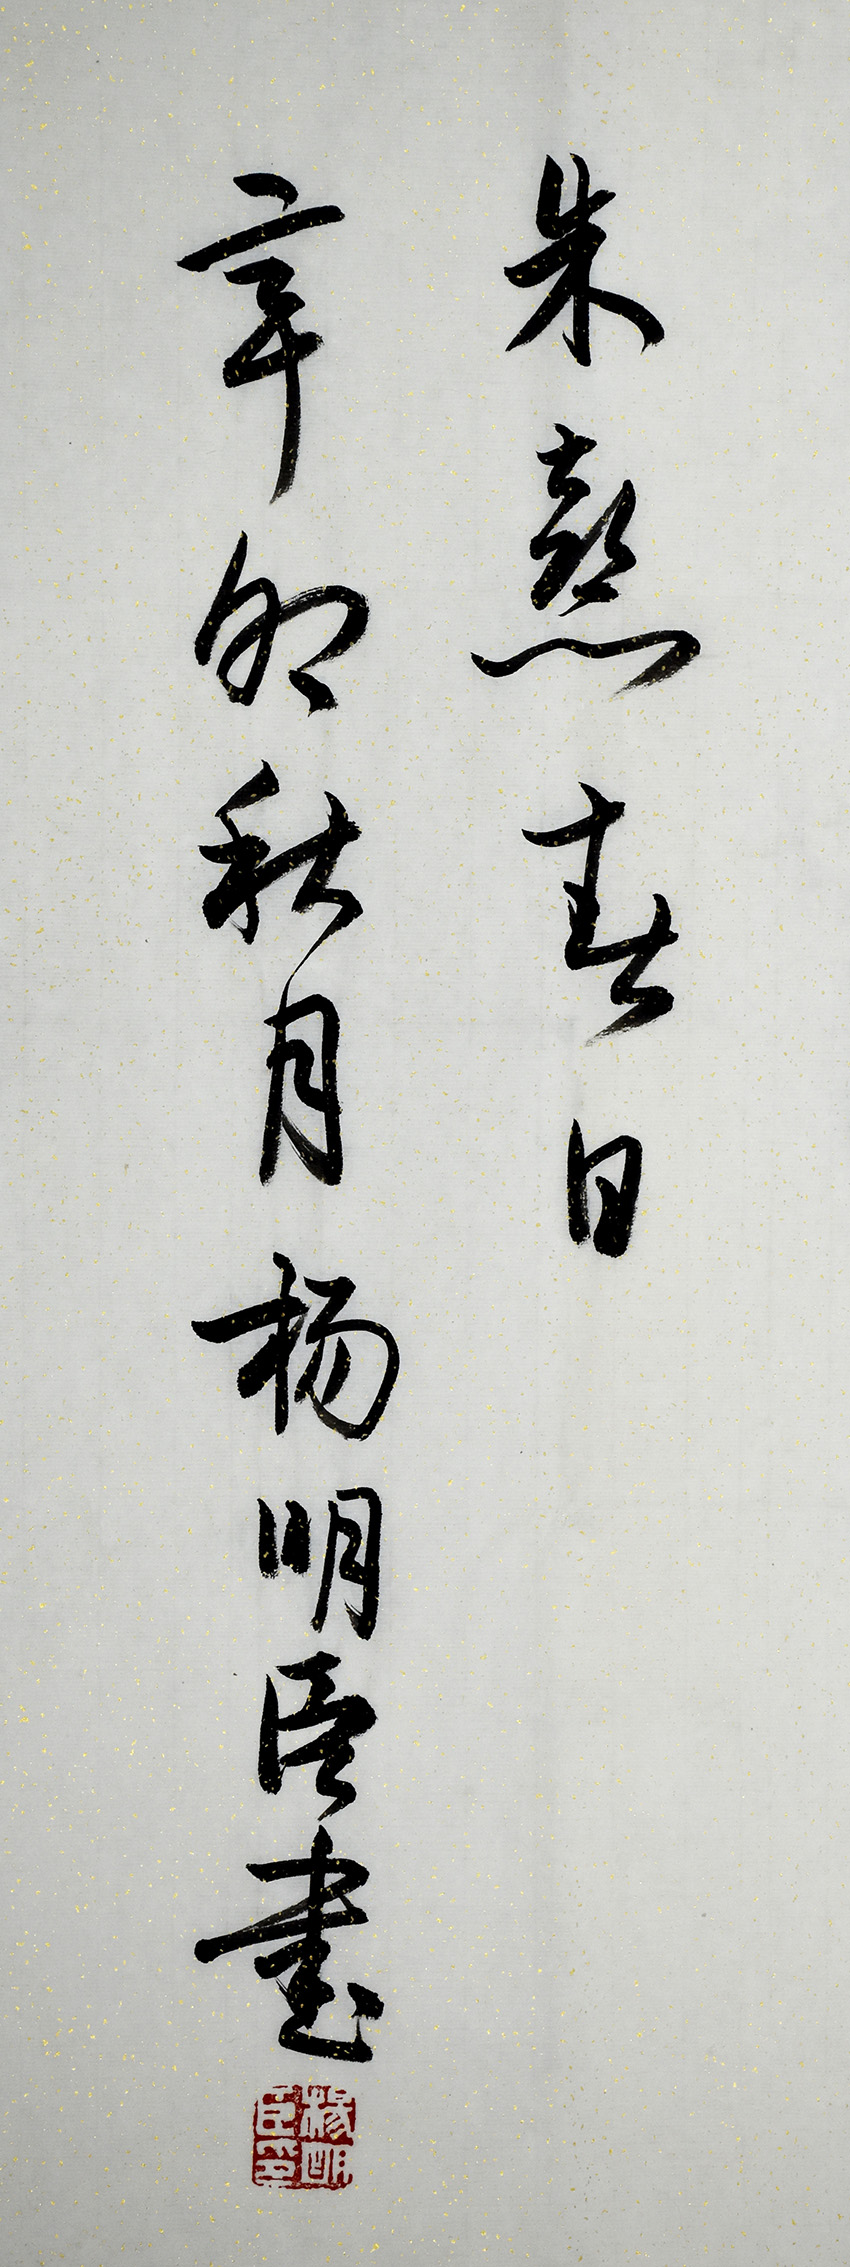 朱熹春日
辛卯秋月杨明臣书
杨明臣印